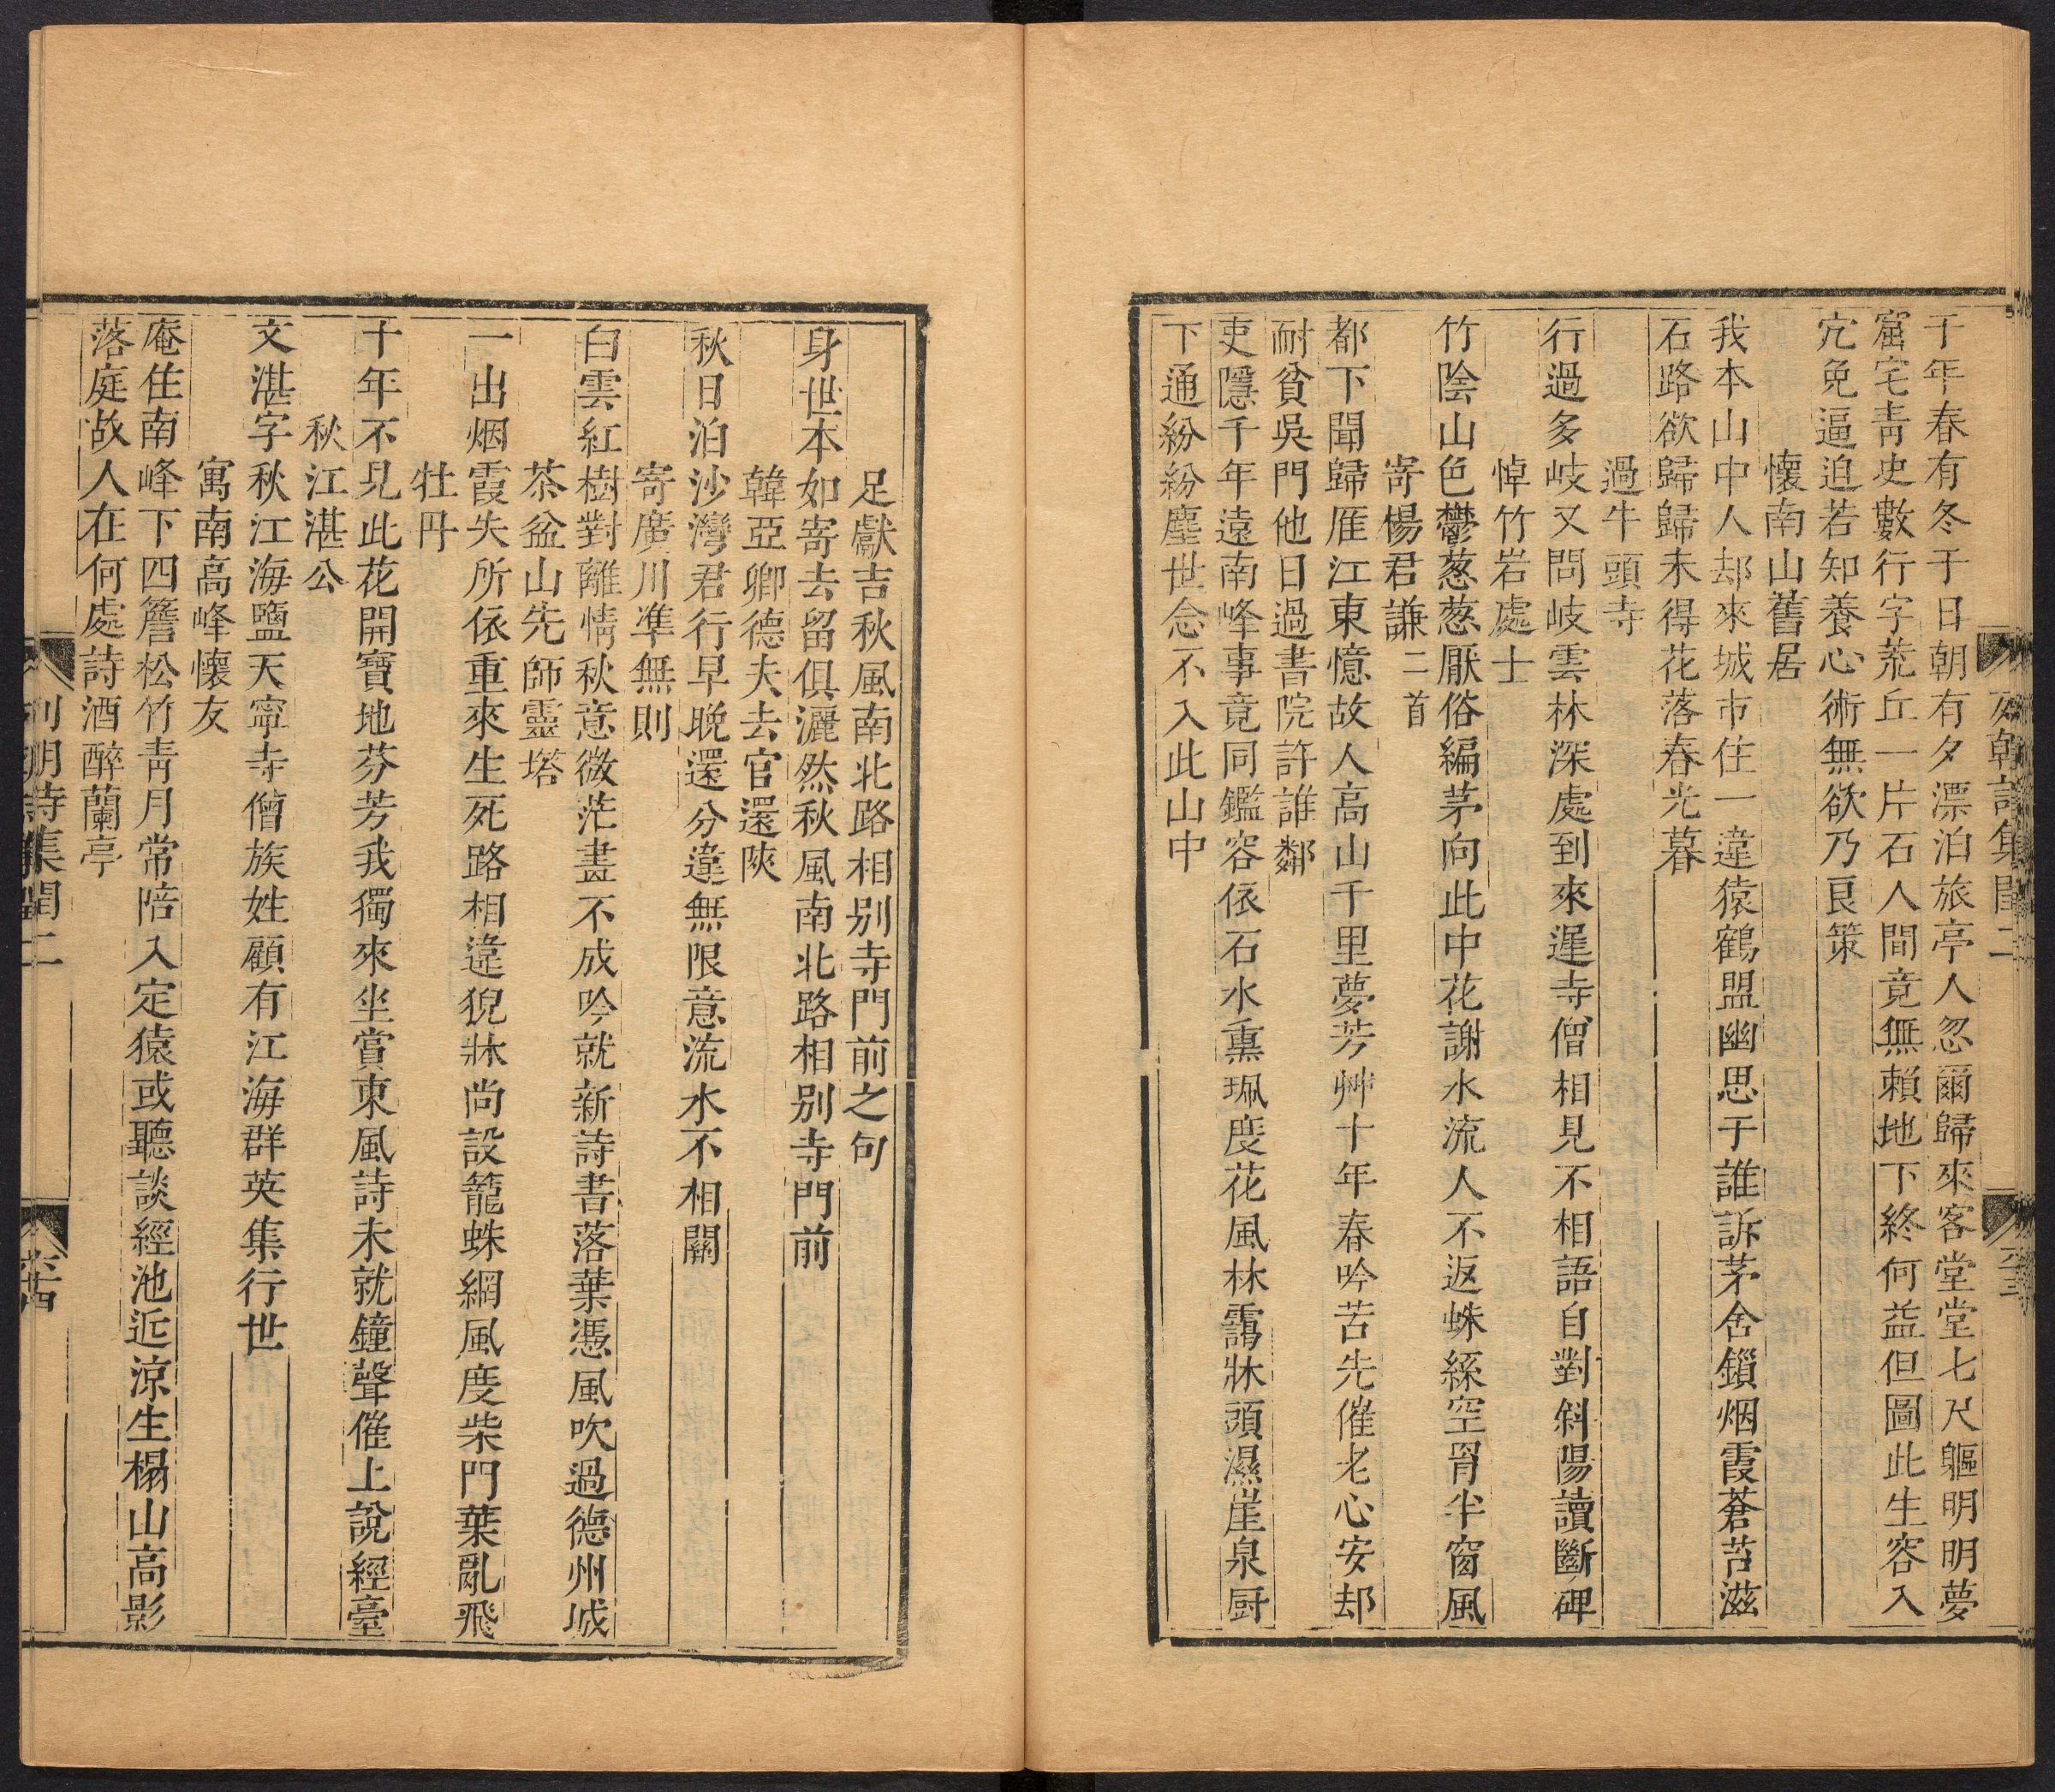 千年春有冬千日朝有夕漂泊旅亭人忽爾歸來客堂堂七尺軀明明夢
窟宅靑史數行字荒丘一片石人間竟無賴地下終何益但圖此生容入
宂免逼迫若知養心術無欲乃良策
懷南山舊居
我本山中人却來城市住一違猿鶴盟幽思于誰訴茅舍鎻烟霞蒼苔滋
石路欲歸歸未得花落春光暮
過牛頭寺
行過多岐又問岐雲林深處到來遲寺僧相見不相語自對斜陽讀斷碑
悼竹岩處士
竹陰山色鬱葱葱厭俗編茅向此中花謝水流人不返蛛絲空罥半窗風
寄楊君謙二首
都下聞歸隹江東憶故人高山千里夢芳艸十年春吟苦先催老心安却
耐貧吳門他日過書院許誰鄰
吏隱千年遠南峰事竟同鑑容依石水熏珮度花風林靄牀頭濕崖泉厨
下通紛紛塵世念不入此山中
列朝詩集閏二
足獻吉秋風南北路相别寺門前之句
身世本如寄去留俱灑然秋風南北路相别寺門前
韓亞卿德夫去官還陝
秋日泊沙灣君行早晚還分違無限意流水不相關
寄廣川準無則
白雲紅樹對離情秋意微茫畫不成吟就新詩書落葉憑風吹過德州城
茶盆山先師靈塔
一出烟霞失所依重來生死路相違猊牀尚設籠蛛網風度柴門葉亂飛
牡丹
十年不見此花開寶地芬芳我獨來坐賞東風詩未就鐘聲催上說經臺
秋江湛公
文湛字秋江海鹽天寧寺僧族姓顧有江海群英集行世
寓南高峰懷友
庵住南峰下四簷松竹靑月常陪入定猿或聽談經池近涼生榻山高影
落庭故人在何處詩酒醉蘭亭
列朝詩集閏二